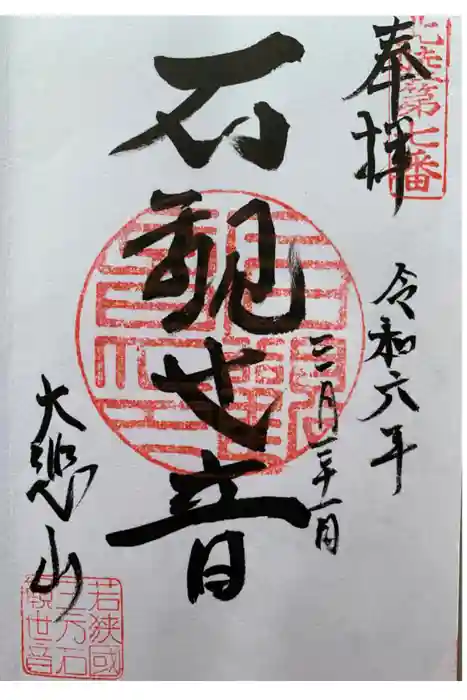 北陸第七番
奉拝
令和六年
三月三十一日
石観世音
大悲山
若狭國
三方石
観世音